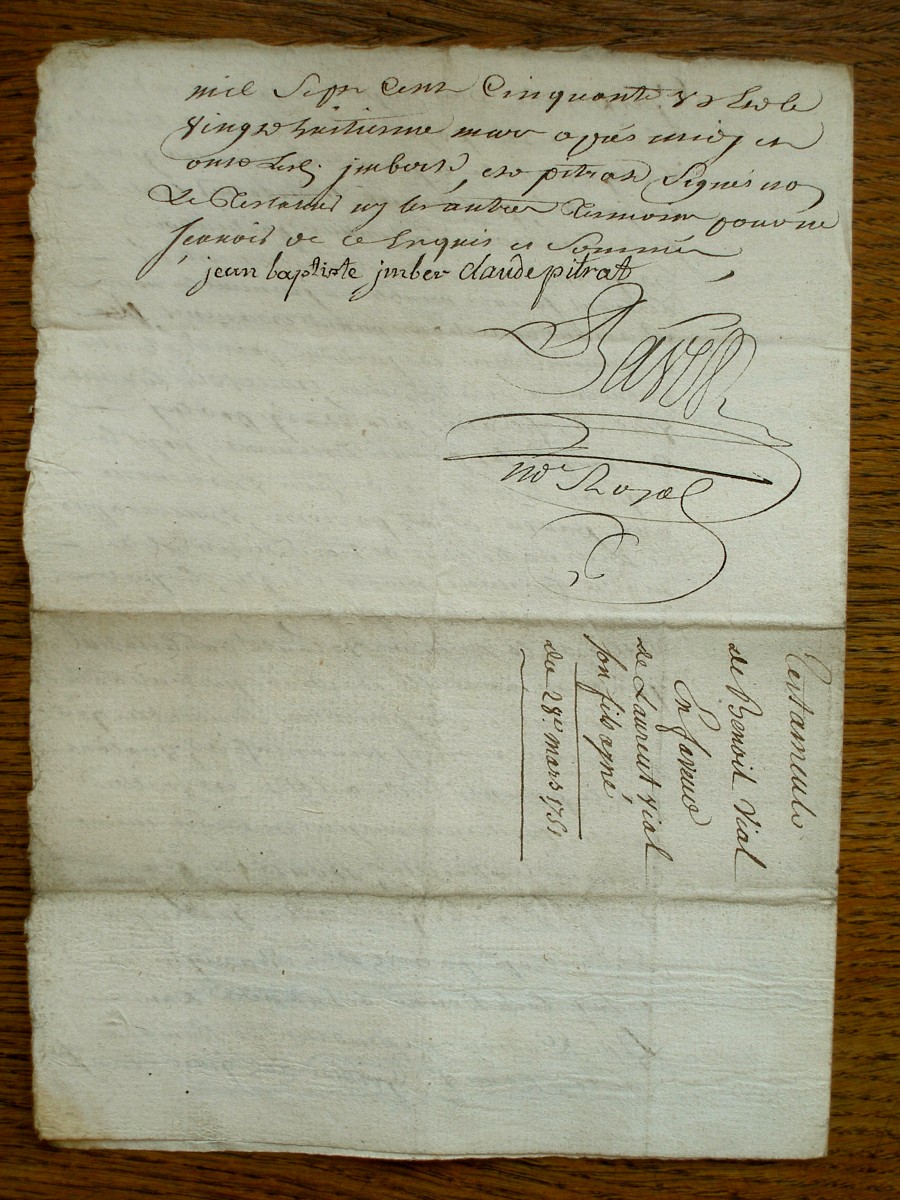 mil Sept Cent Cinquante & Un le
vingt huitieme mars après midy et
ont Led. jmbert, et pitrat Signés non
Le Testateur ny les autres Temoins pour ne
scavoir de ce Enquis et Sommés
jean baptiste jmber claude pitrat
no.re Royal
Testament
de Benoit Vial
En faveur
de Laurent Vial
son fils ayné
du 28.e mars 1751